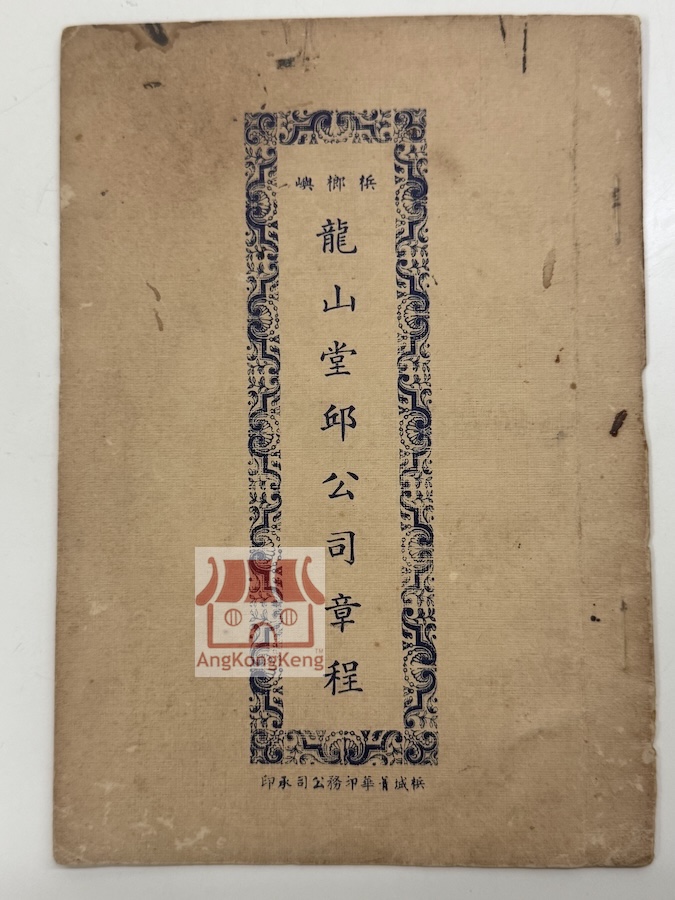 梹榔嶼
龍山堂邱公司章程
梹城華印務公司承印
AngKongKeng™